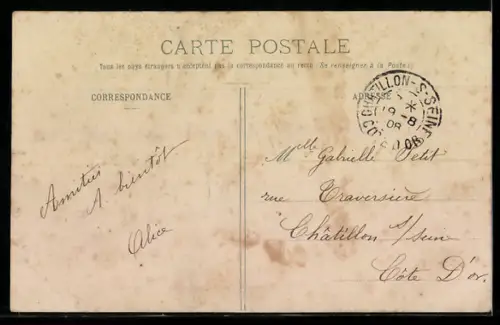 CARTE POSTALE
Tous les pays étrangers n'acceptent pas la correspondance au recto (Se renseigner à la Poste)
CORRESPONDANCE
ADRESSE
CHATILLON-S-SEINE
08
Amitiés
A bientôt
Alice
Mlle Gabrielle Petit
rue Traversière
Châtillon s/seine
Côte D'or.